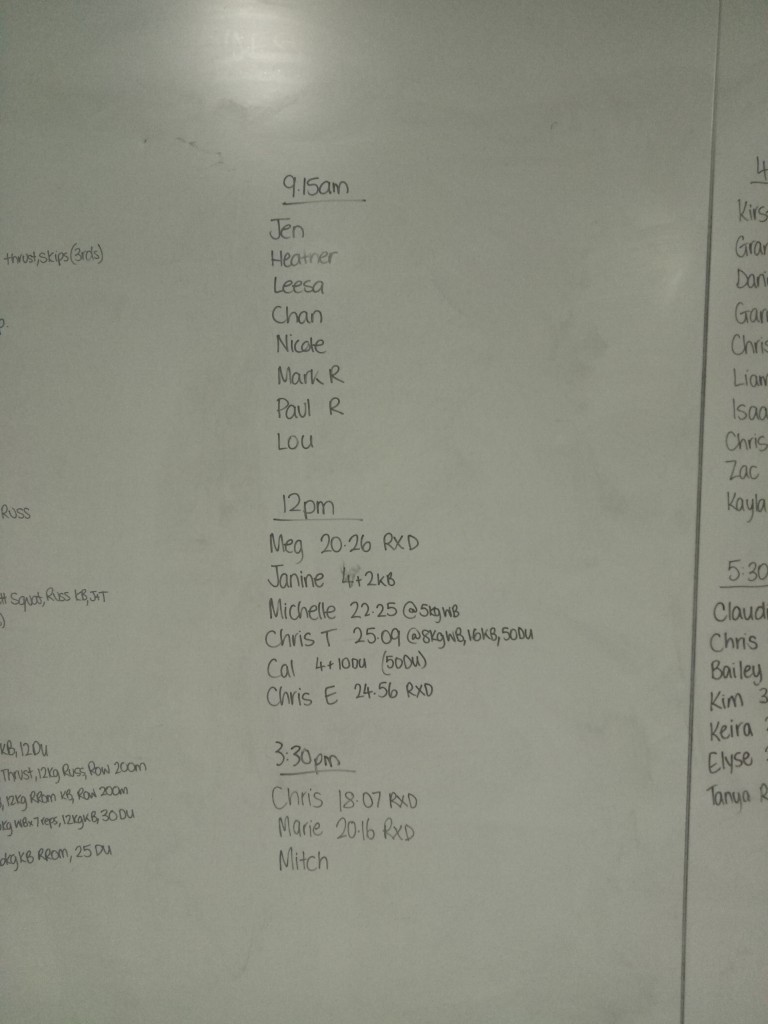 thrust, skips (3rds)
Russ
Squat, Russ KB, JT
KB, 12DU
Thrust, 12kg Russ, Row 200m
12kg RRom KB, Row 200m
kg WB x 7reps, 12kgKB, 30DU
kg KB RRom, 25 DU
9.15am
Jen
Heather
Leesa
Chan
Nicole
Mark R
Paul R
Lou
12pm
Meg 20.26 RXD
Janine 4+2KB
Michelle 22.25 @5kgWB
Chris T 25.09 @8kgWB, 16KB, 50DU
Cal 4+10DU (50DU)
Chris E 24.56 RXD
3:30pm
Chris 18.07 RXD
Marie 20.16 RXD
Mitch
4
Kirs
Gra
Dani
Gar
Chris
Liam
Isaa
Chris
Zac
Kayla
5:30
Claudi
Chris
Bailey
Kim 3
Keira
Elyse
Tanya R